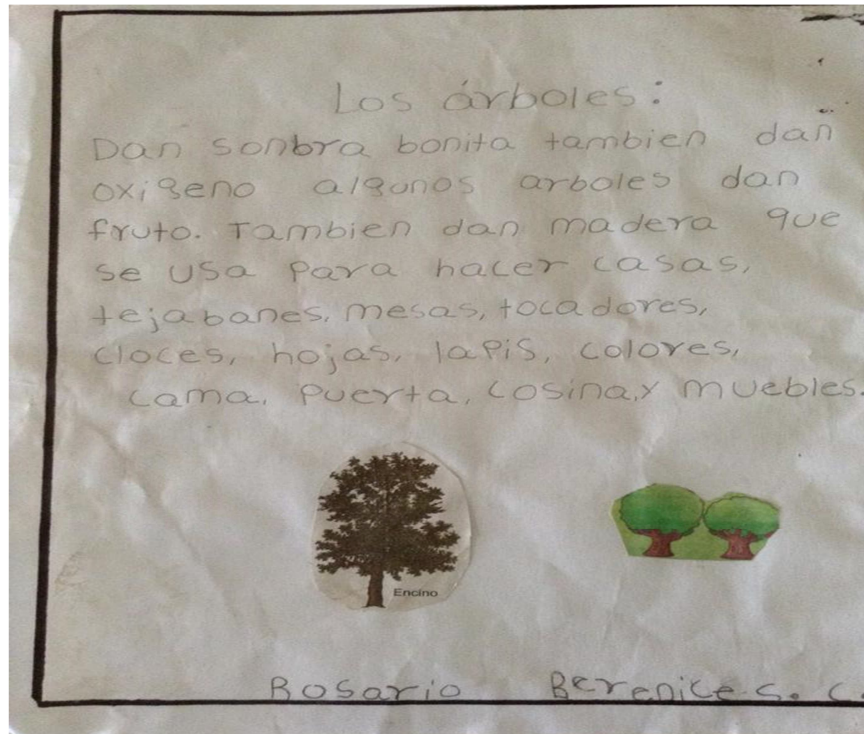 Los árboles:
Dan sonbra bonita tambien dan
oxigeno algunos arboles dan
fruto. Tambien dan madera que
se usa para hacer casas,
tejabanes, mesas, tocadores,
cloces, hojas, lapis, colores,
cama, puerta, cosina,y muebles.
Encino
Rosario Berenice S. C.